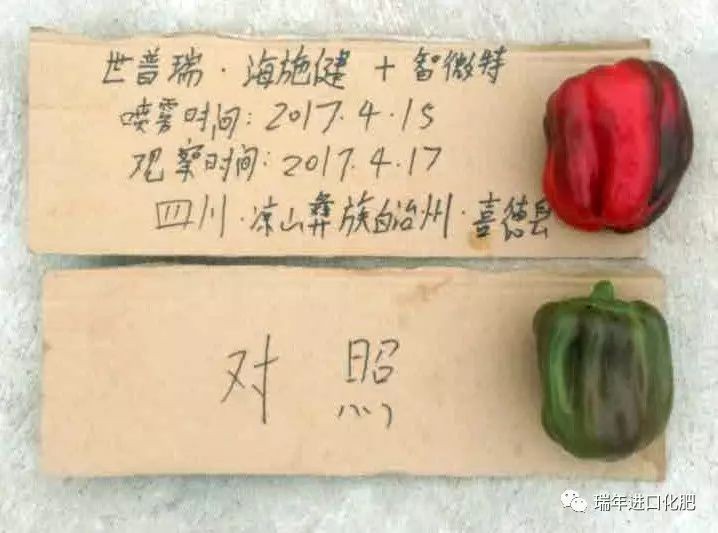 世普瑞·海施健+智微特
喷雾时间:2017.4.15
观察时间:2017.4.17
四川·凉山彝族自治州·喜德县
对照
瑞年进口化肥